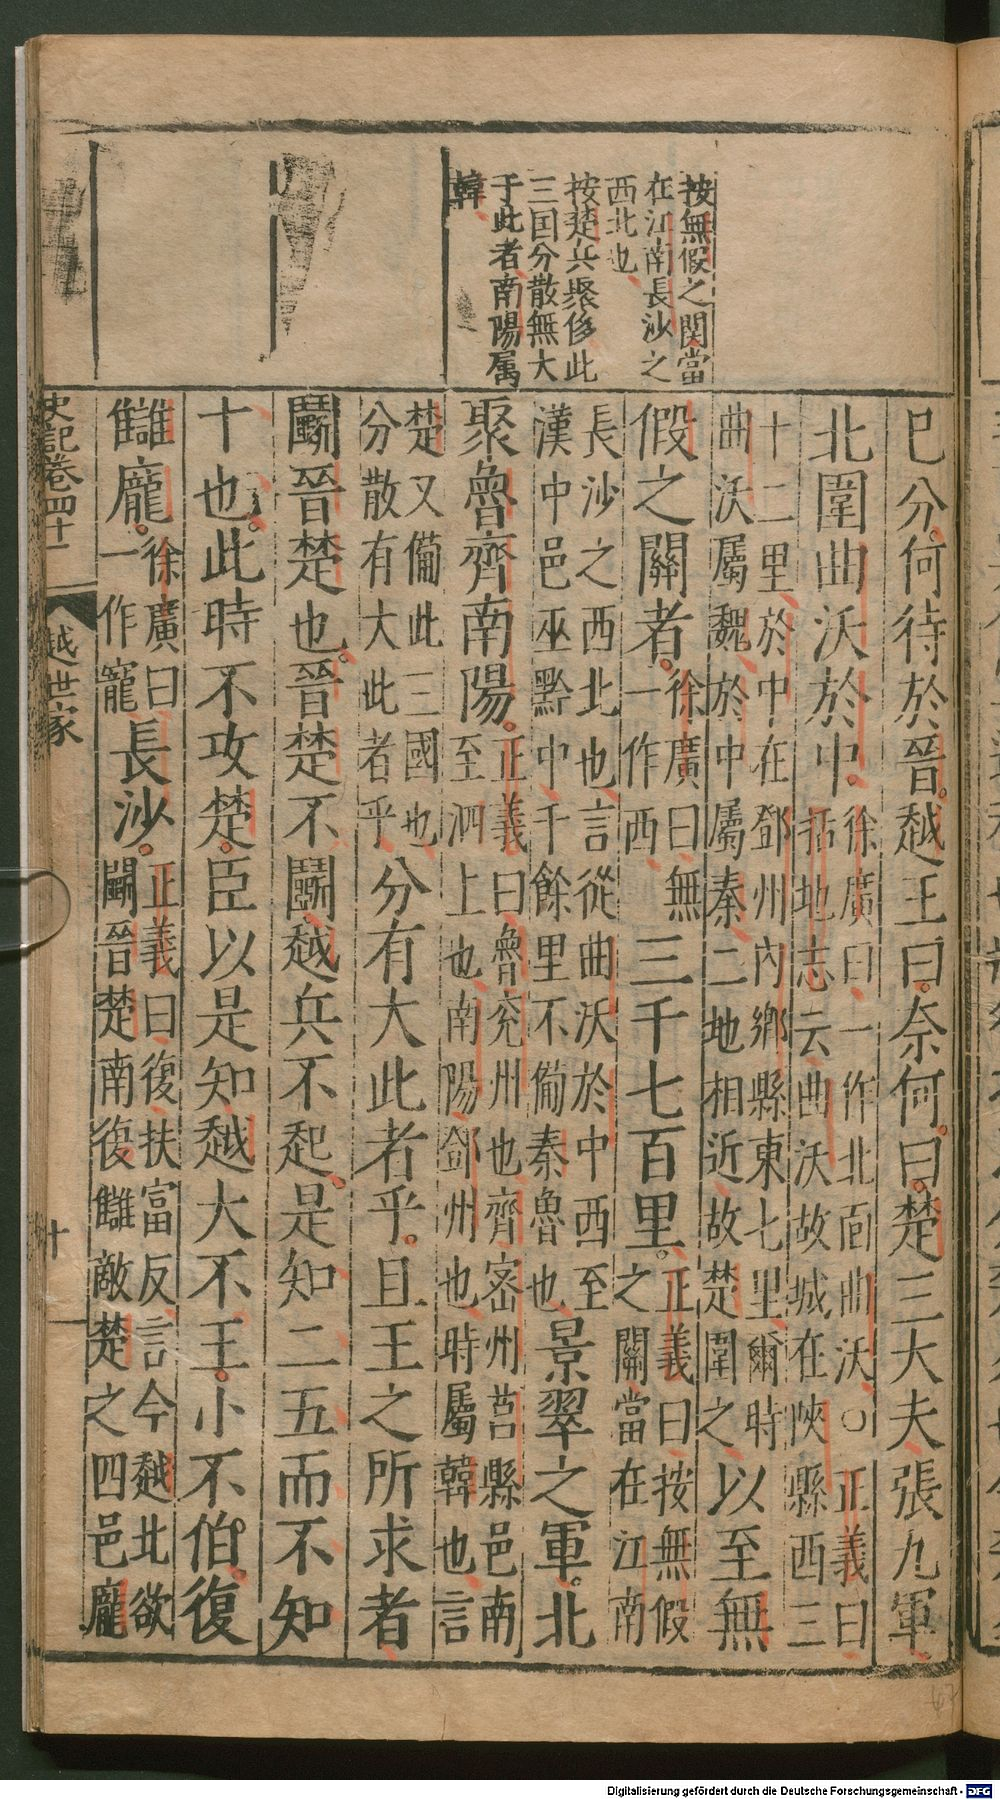 按無假之関當
在江南長沙之
西北也
按楚兵聚侈此
三国分散無大
于此者南陽属
韓
已分何待於晉越王曰奈何曰楚三大夫張九軍
北圍曲沃於中徐廣曰一作北面曲沃○正義曰
括地志云曲沃故城在陜縣西三
十二里於中在鄧州内鄉縣東七里爾時
曲沃屬魏於中屬秦二地相近故楚圍之以至無
假之關者徐廣曰無
一作西三千七百里正義曰按無假
之關當在江南
長沙之西北也言從曲沃於中西至
漢中邑巫黔中千餘里不僃秦魯也景翠之軍北
聚魯齊南陽正義曰魯兖州也齊宻州莒縣邑南
至泗上也南陽鄧州也時屬韓也言
楚又僃此三國也
分散有大此者乎分有大此者乎且王之所求者
鬭晉楚也晉楚不鬭越兵不起是知二五而不知
十也此時不攻楚臣以是知越大不王小不伯復
讎龐徐廣曰
一作寵長沙正義曰復扶富反言今越北欲
鬭晉楚南復讎敵楚之四邑龐
史記卷四十一
越世家
十
Digitalisierung gefördert durch die Deutsche Forschungsgemeinschaft - DFG